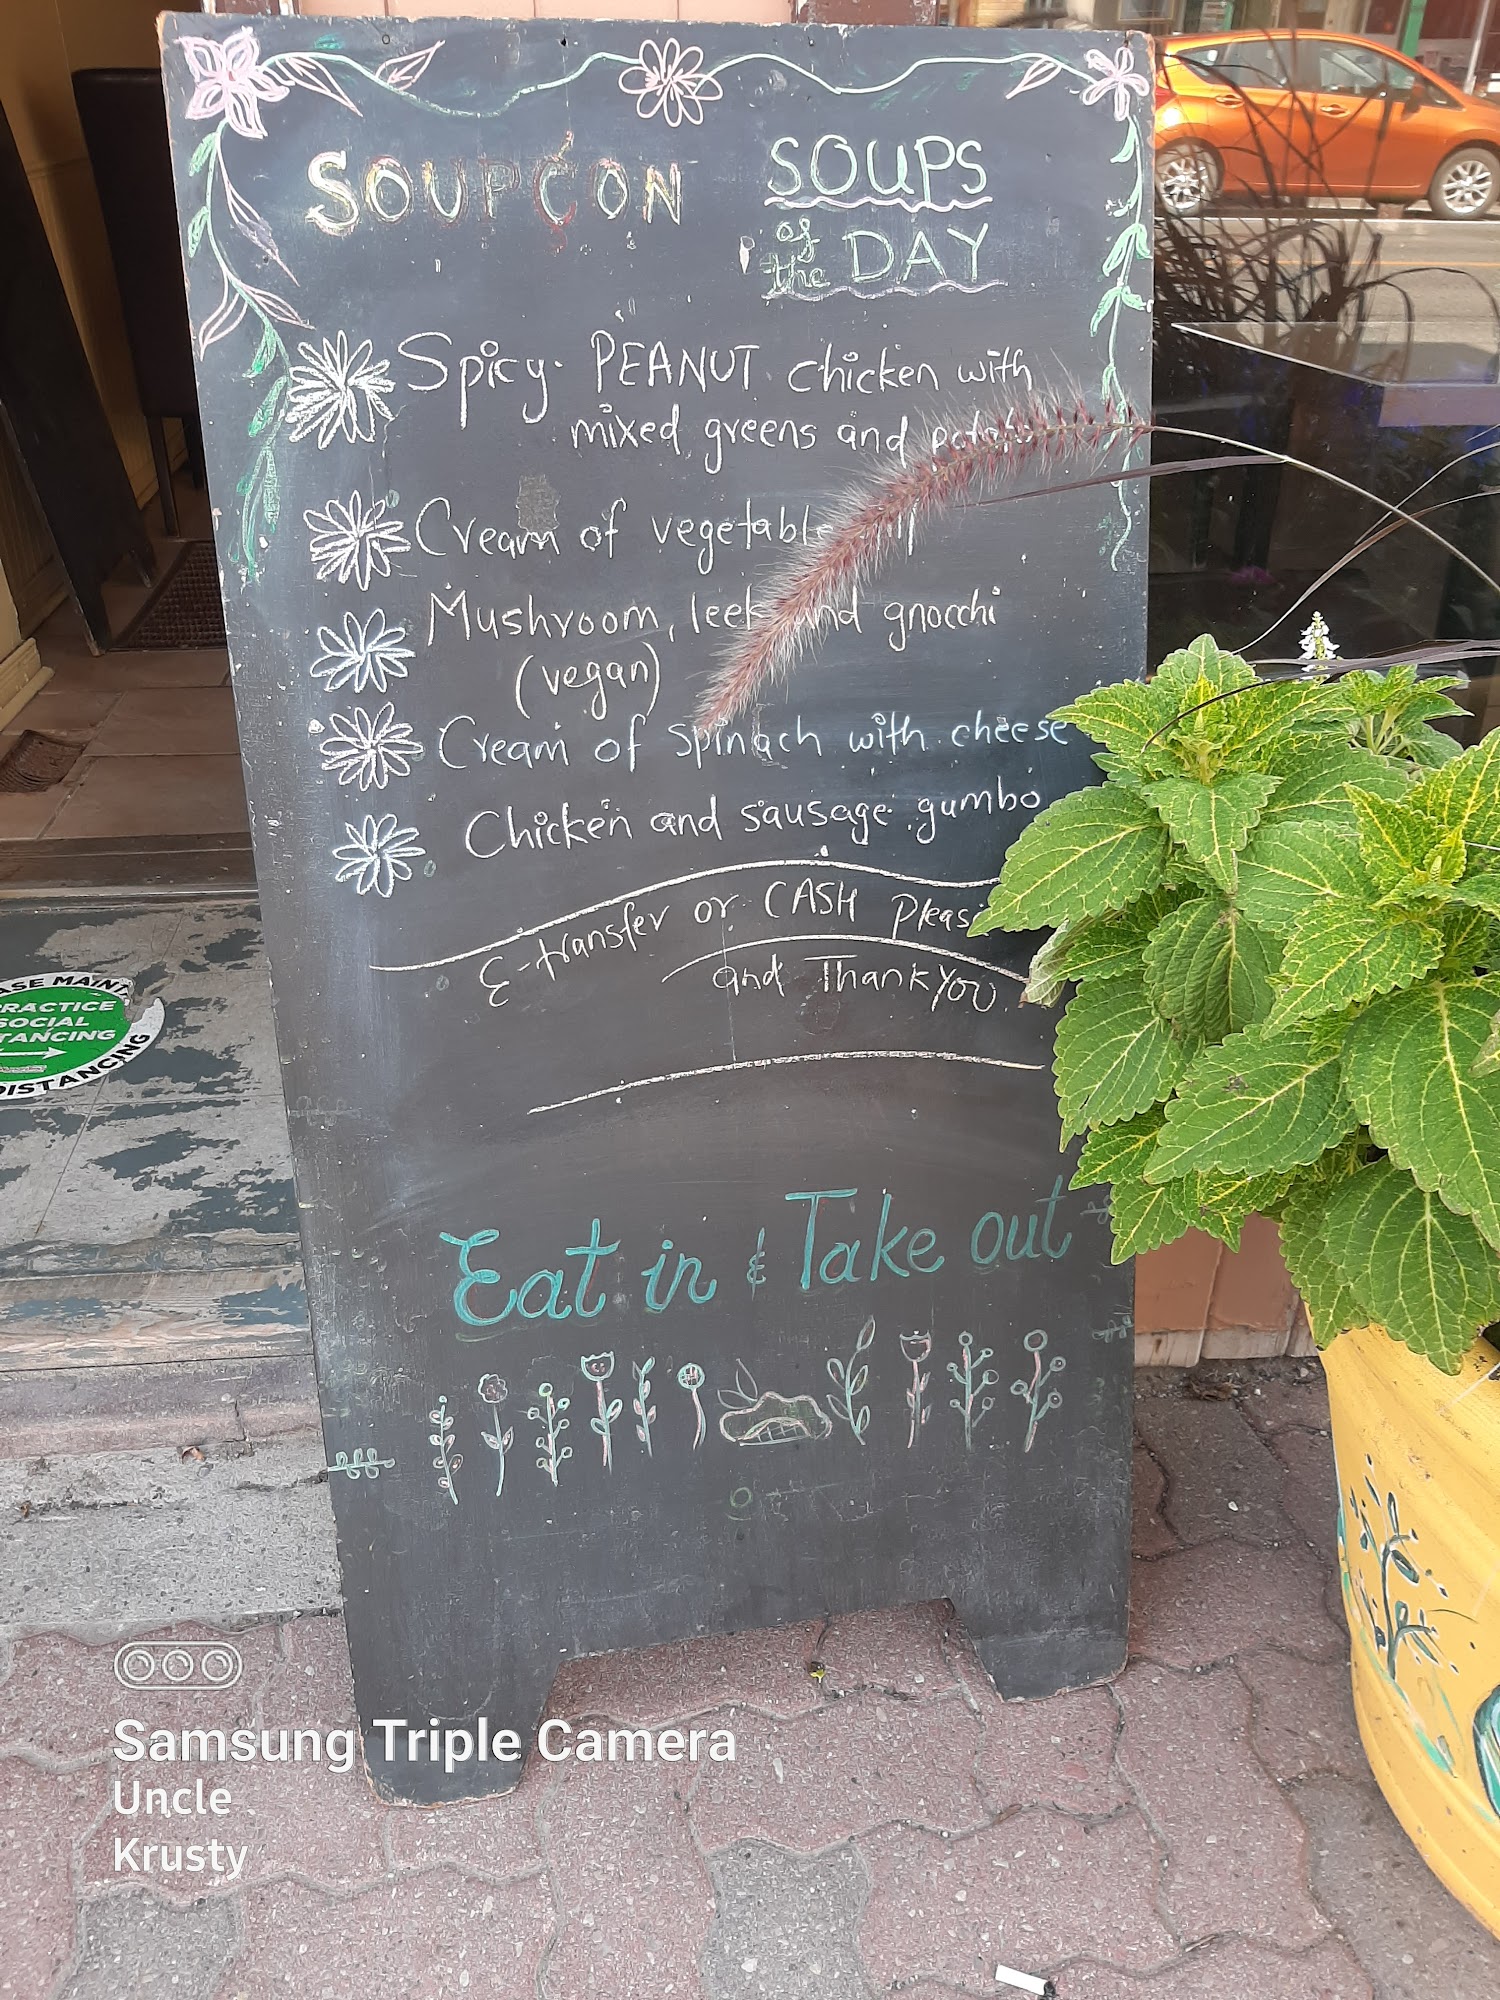 SOUPÇON
SOUPS
of the DAY
Spicy PEANUT chicken with
mixed greens and potato
Cream of vegetable
Mushroom, leek and gnocchi
(vegan)
Cream of spinach with cheese
Chicken and sausage gumbo
E-transfer or CASH Please
and Thank You
Eat in & Take out
ASE MAINT
PRACTICE
SOCIAL
TANCING
DISTANCING
Samsung Triple Camera
Uncle
Krusty